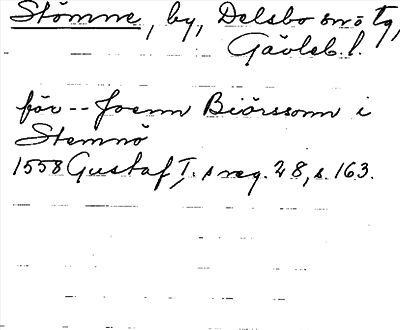 Stömne, by, Delsbo sn o tg,
Gävleb. l.
för -- Joenn Biörssonn i
Stemnö
1558 Gustaf I:s reg. 28, s. 163.